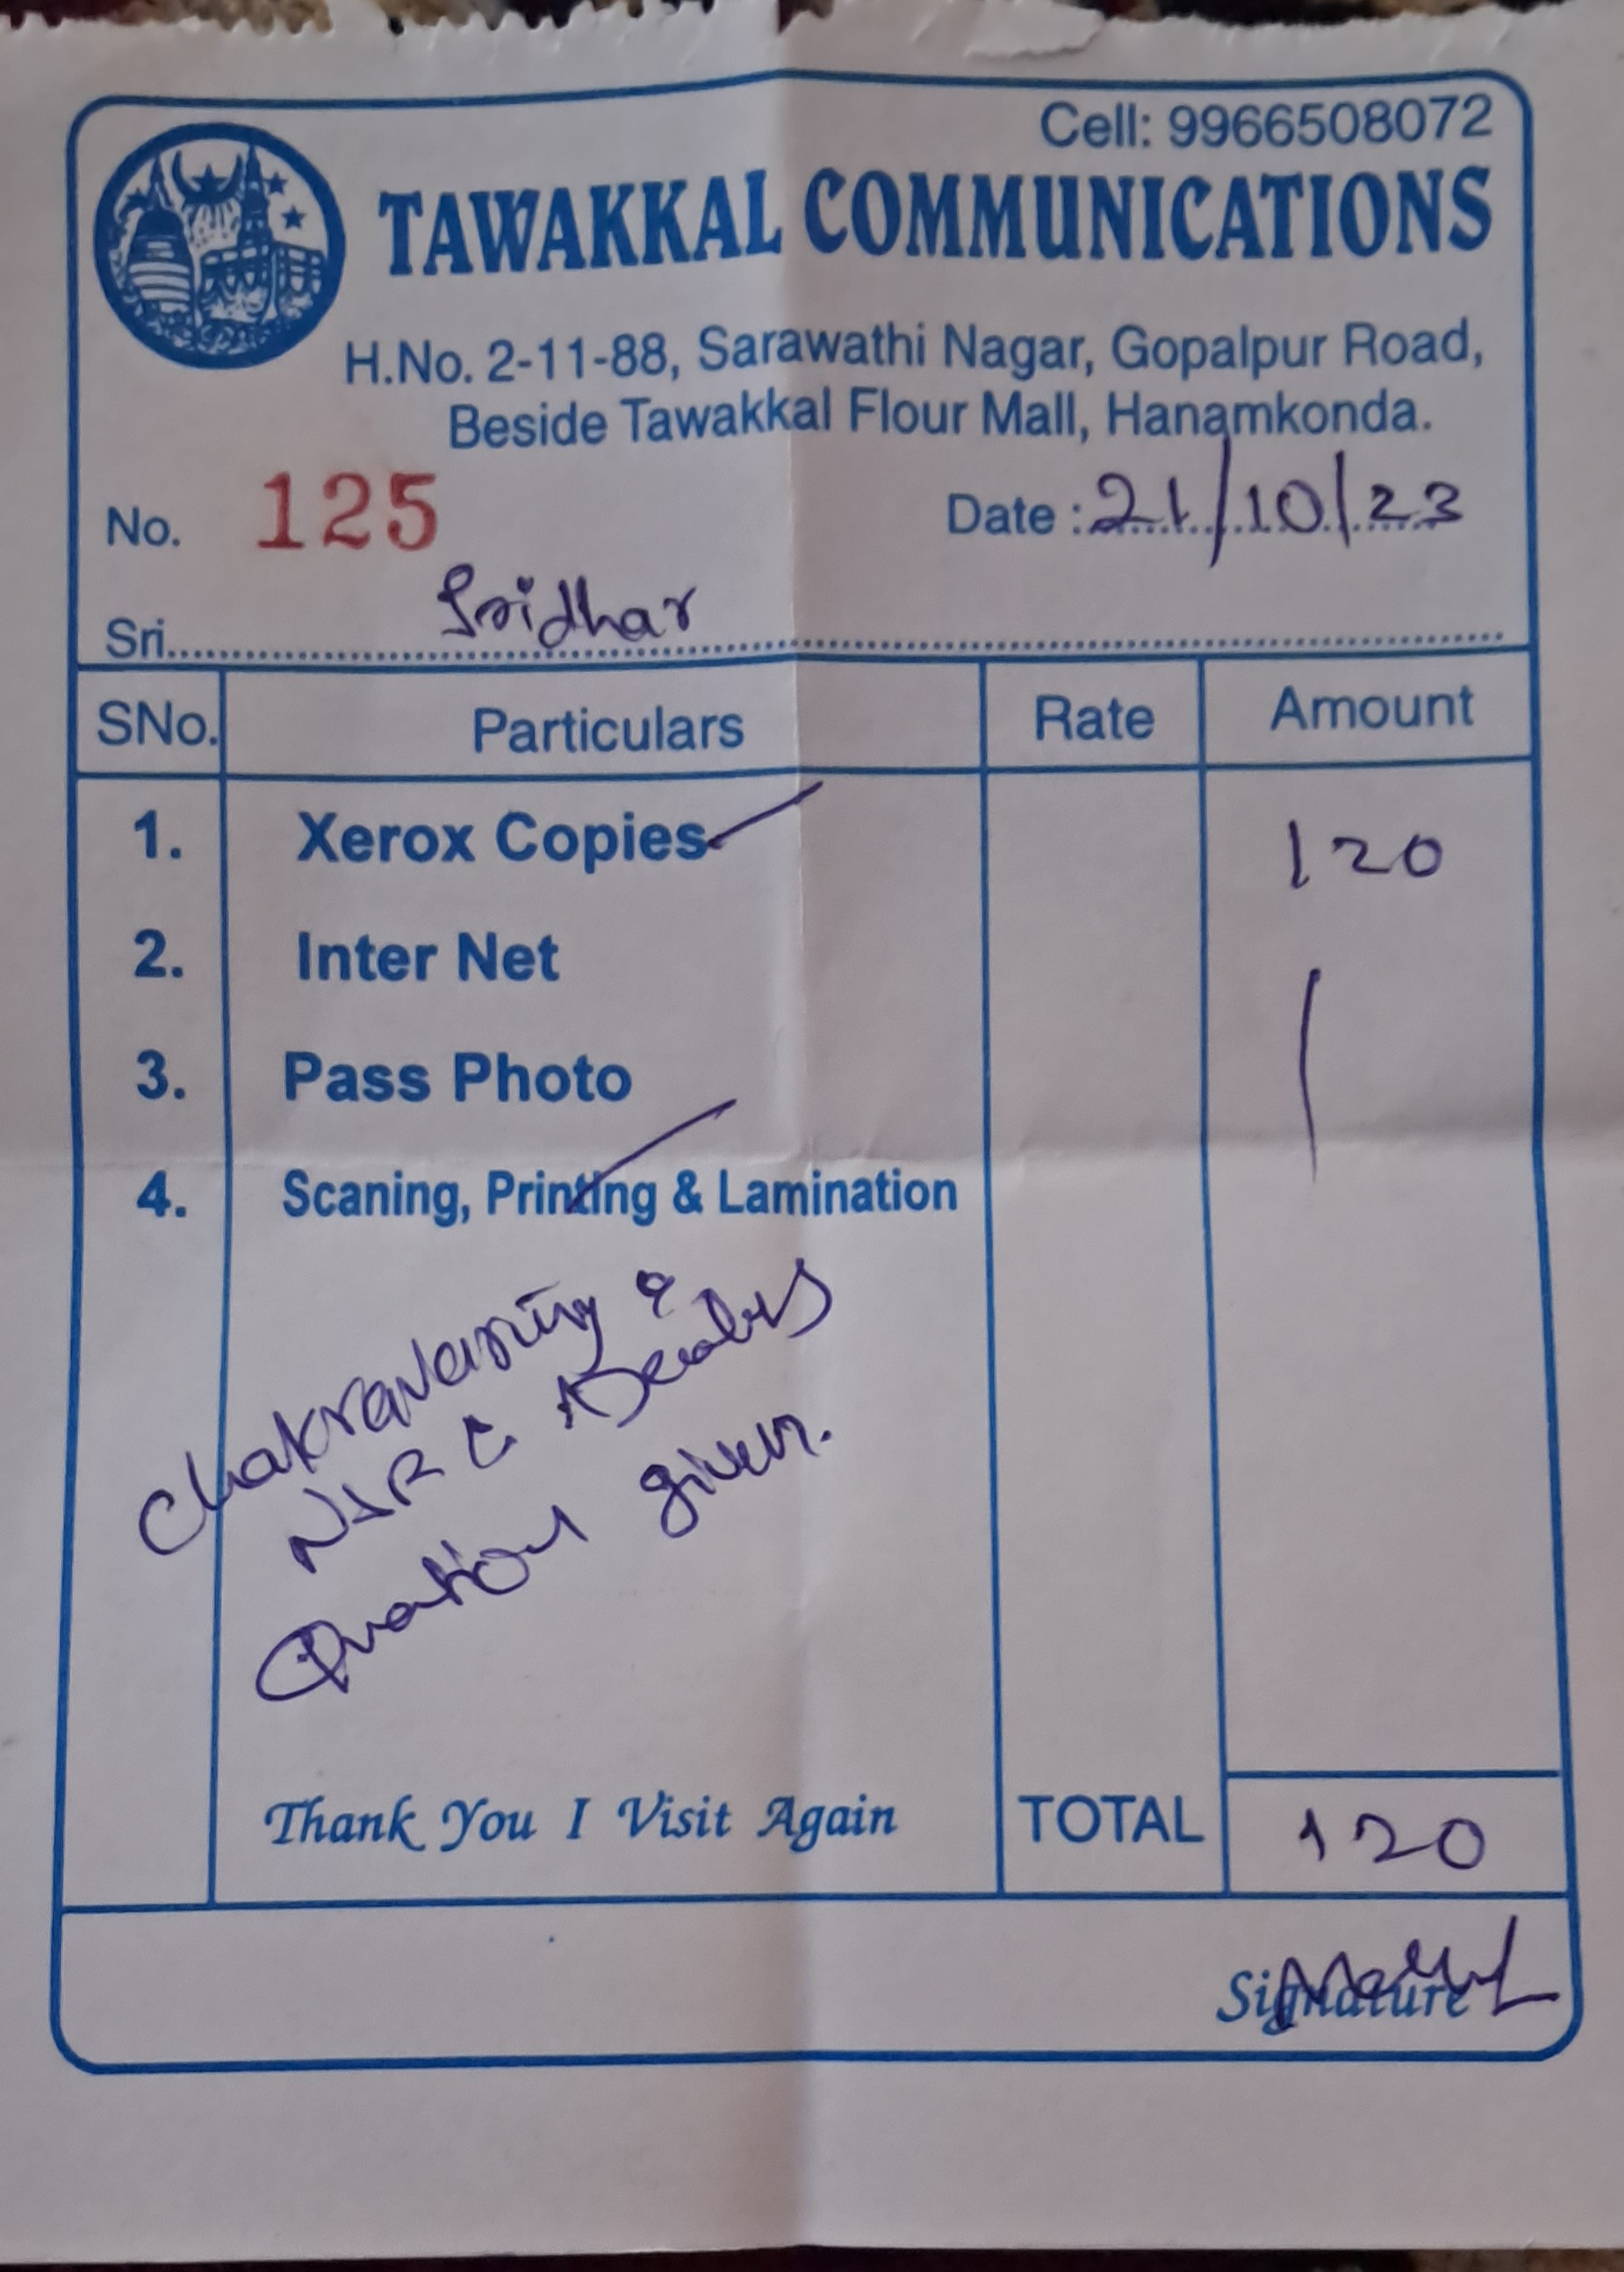 Cell: 9966508072
TAWAKKAL COMMUNICATIONS
H.No. 2-11-88, Sarawathi Nagar, Gopalpur Road,
Beside Tawakkal Flour Mall, Hanamkonda.
No. 125 Date : 21/10/23
Sri. Sridhar
SNo. Particulars Rate Amount
1. Xerox Copies 120
2. Inter Net
3. Pass Photo
4. Scaning, Printing & Lamination
&
given.
Thank You I Visit Again TOTAL 120
Signature